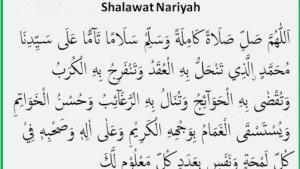 Shalawat Nariyah
اَللّٰهُمَّ صَلِّ صَلَاةً كَامِلَةً وَسَلِّمْ سَلَامًا تَآمًّا عَلَى سَيِّدِنَا
مُحَمَّدٍ الَّذِي تَنْحَلُّ بِهِ الْعُقَدُ وَتَنْفَرِجُ بِهِ الْكُرَبُ
وَتُقْضَى بِهِ الْحَوَآئِجُ وَتُنَالُ بِهِ الرَّغَآئِبُ وَحُسْنُ الْخَوَاتِيمِ
وَيُسْتَسْقَى الْغَمَامُ بِوَجْهِهِ الْكَرِيْمِ وَعَلَى اٰلِهِ وَصَحْبِهِ فِيْ
كُلِّ لَمْحَةٍ وَنَفَسٍ بِعَدَدِ كُلِّ مَعْلُوْمٍ لَّكَ